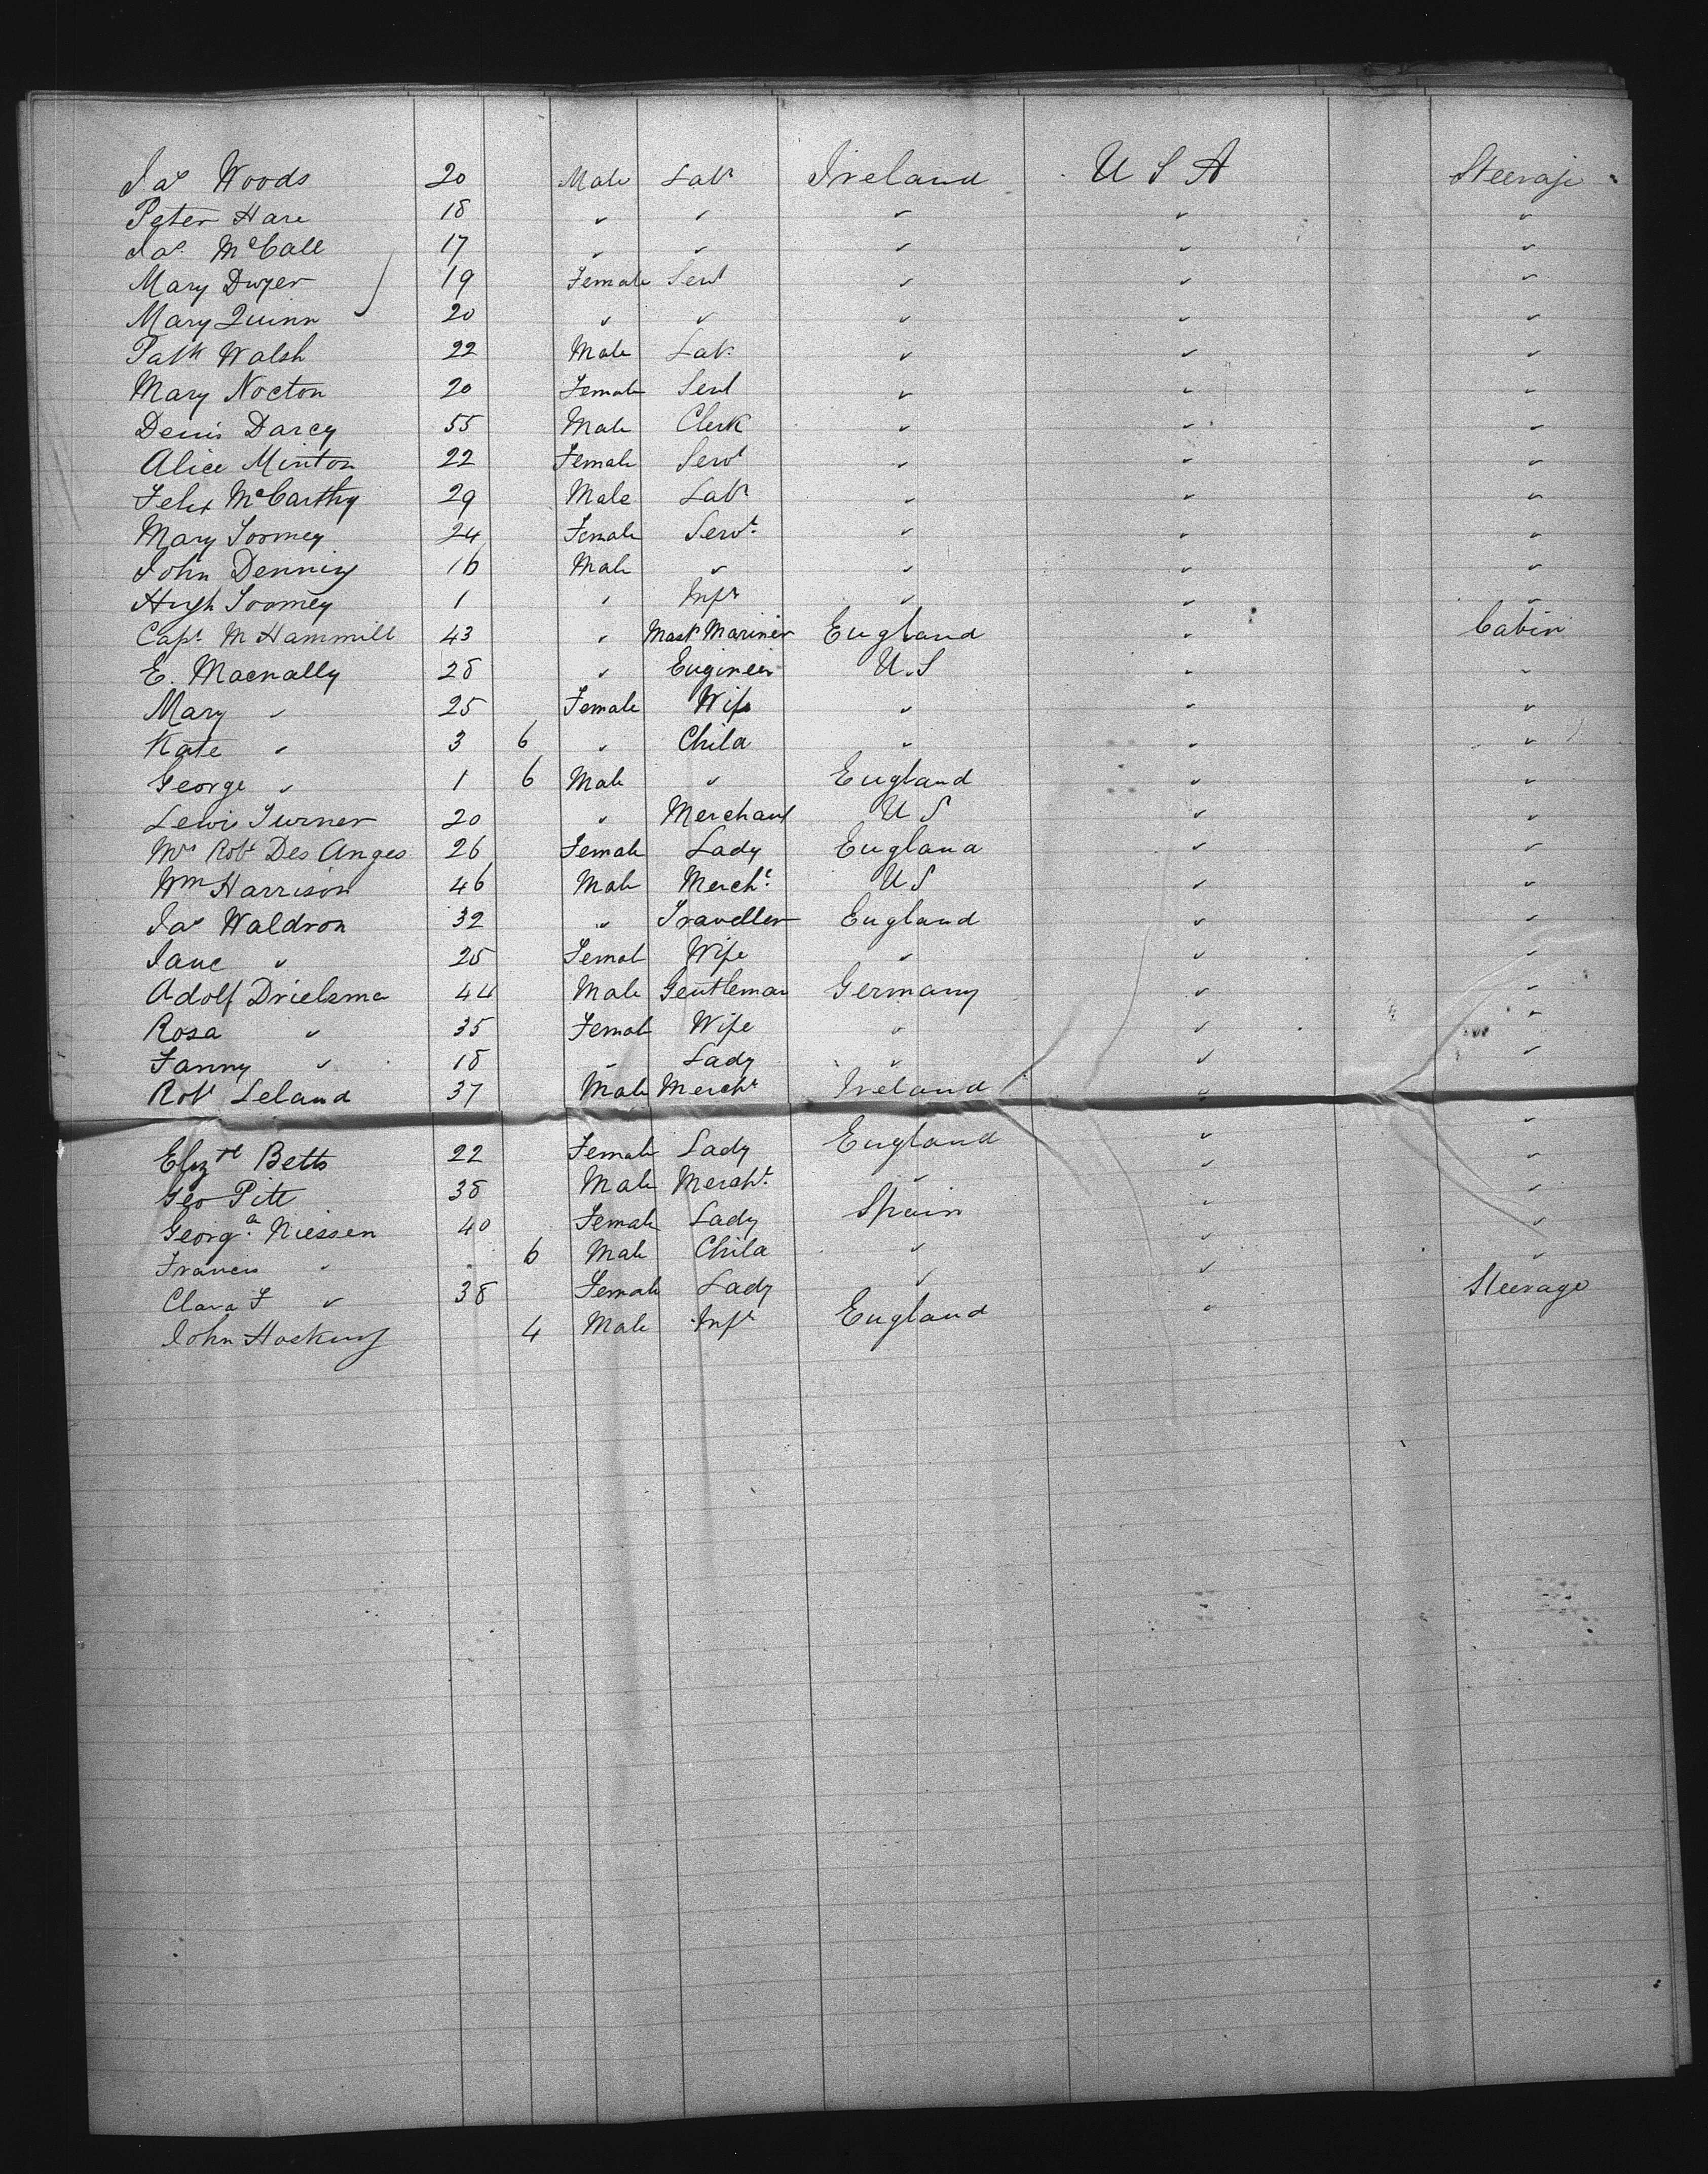 Jas Woods 20 Male Labr Ireland U S A Steerage
Peter Hare 18 " " " " "
Jas. McCall 17 " " " " "
Mary Dwyer 19 Female Servt " " "
Mary Quinn 20 " " " " "
Patk Walsh 22 Male Labr " " "
Mary Nocton 20 Female Servt " " "
Denis Darcy 55 Male Clerk " " "
Alice Minton 22 Female Servt " " "
Felix McCarthy 29 Male Labr " " "
Mary Toomey 24 Female Servt. " " "
John Denning 16 Male " " " "
Hugh Toomey 1 " Inft " " "
Capt. M Hammill 43 " Mastr Mariner England " Cabin
E. Macnally 28 " Engineer U.S " "
Mary " 25 Female Wife " " "
Kate " 3 6 " Child " " "
George " 1 6 Male " England " "
Lewis Turner 20 " Merchant U S " "
Mrs Robt Des Anges 26 Female Lady England " "
Wm Harrison 46 Male Mercht. U S " "
Jas Waldron 32 " Traveller England " "
Jane " 25 Female Wife " " "
Adolf Drielsma 44 Male Gentleman Germany " "
Rosa " 35 Female Wife " " "
Fanny " 18 " Lady " " "
Robt Leland 37 Male Mercht Ireland " "
Elizth Betts 22 Female Lady England " "
Geo Pitt 38 Male Mercht. " " "
Georga. Niessen 40 Female Lady Spain " "
Francis " 6 Male Child " " "
Clara F " 38 Female Lady " " "
John Hocking 4 Male Inft England " Steerage